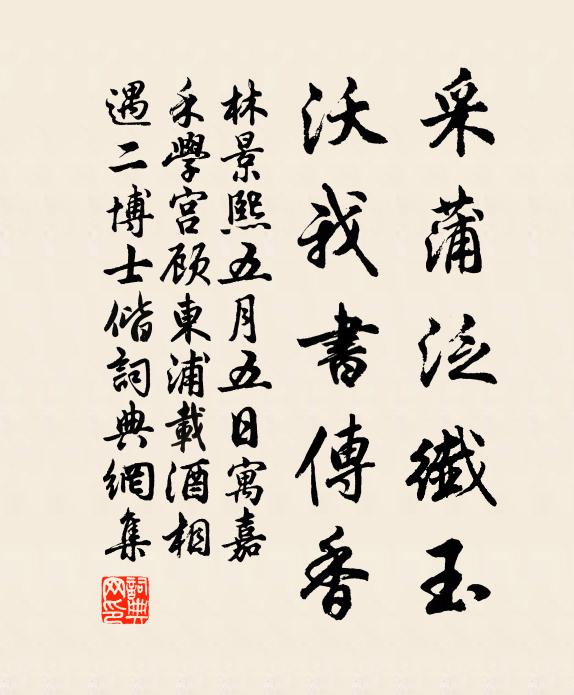 采蒲泛纖玉
沃我書傳香
林景熙五月五日寓嘉
禾學宮顾東浦載酒相
遇二博士偕詞典網集
詞典
网印